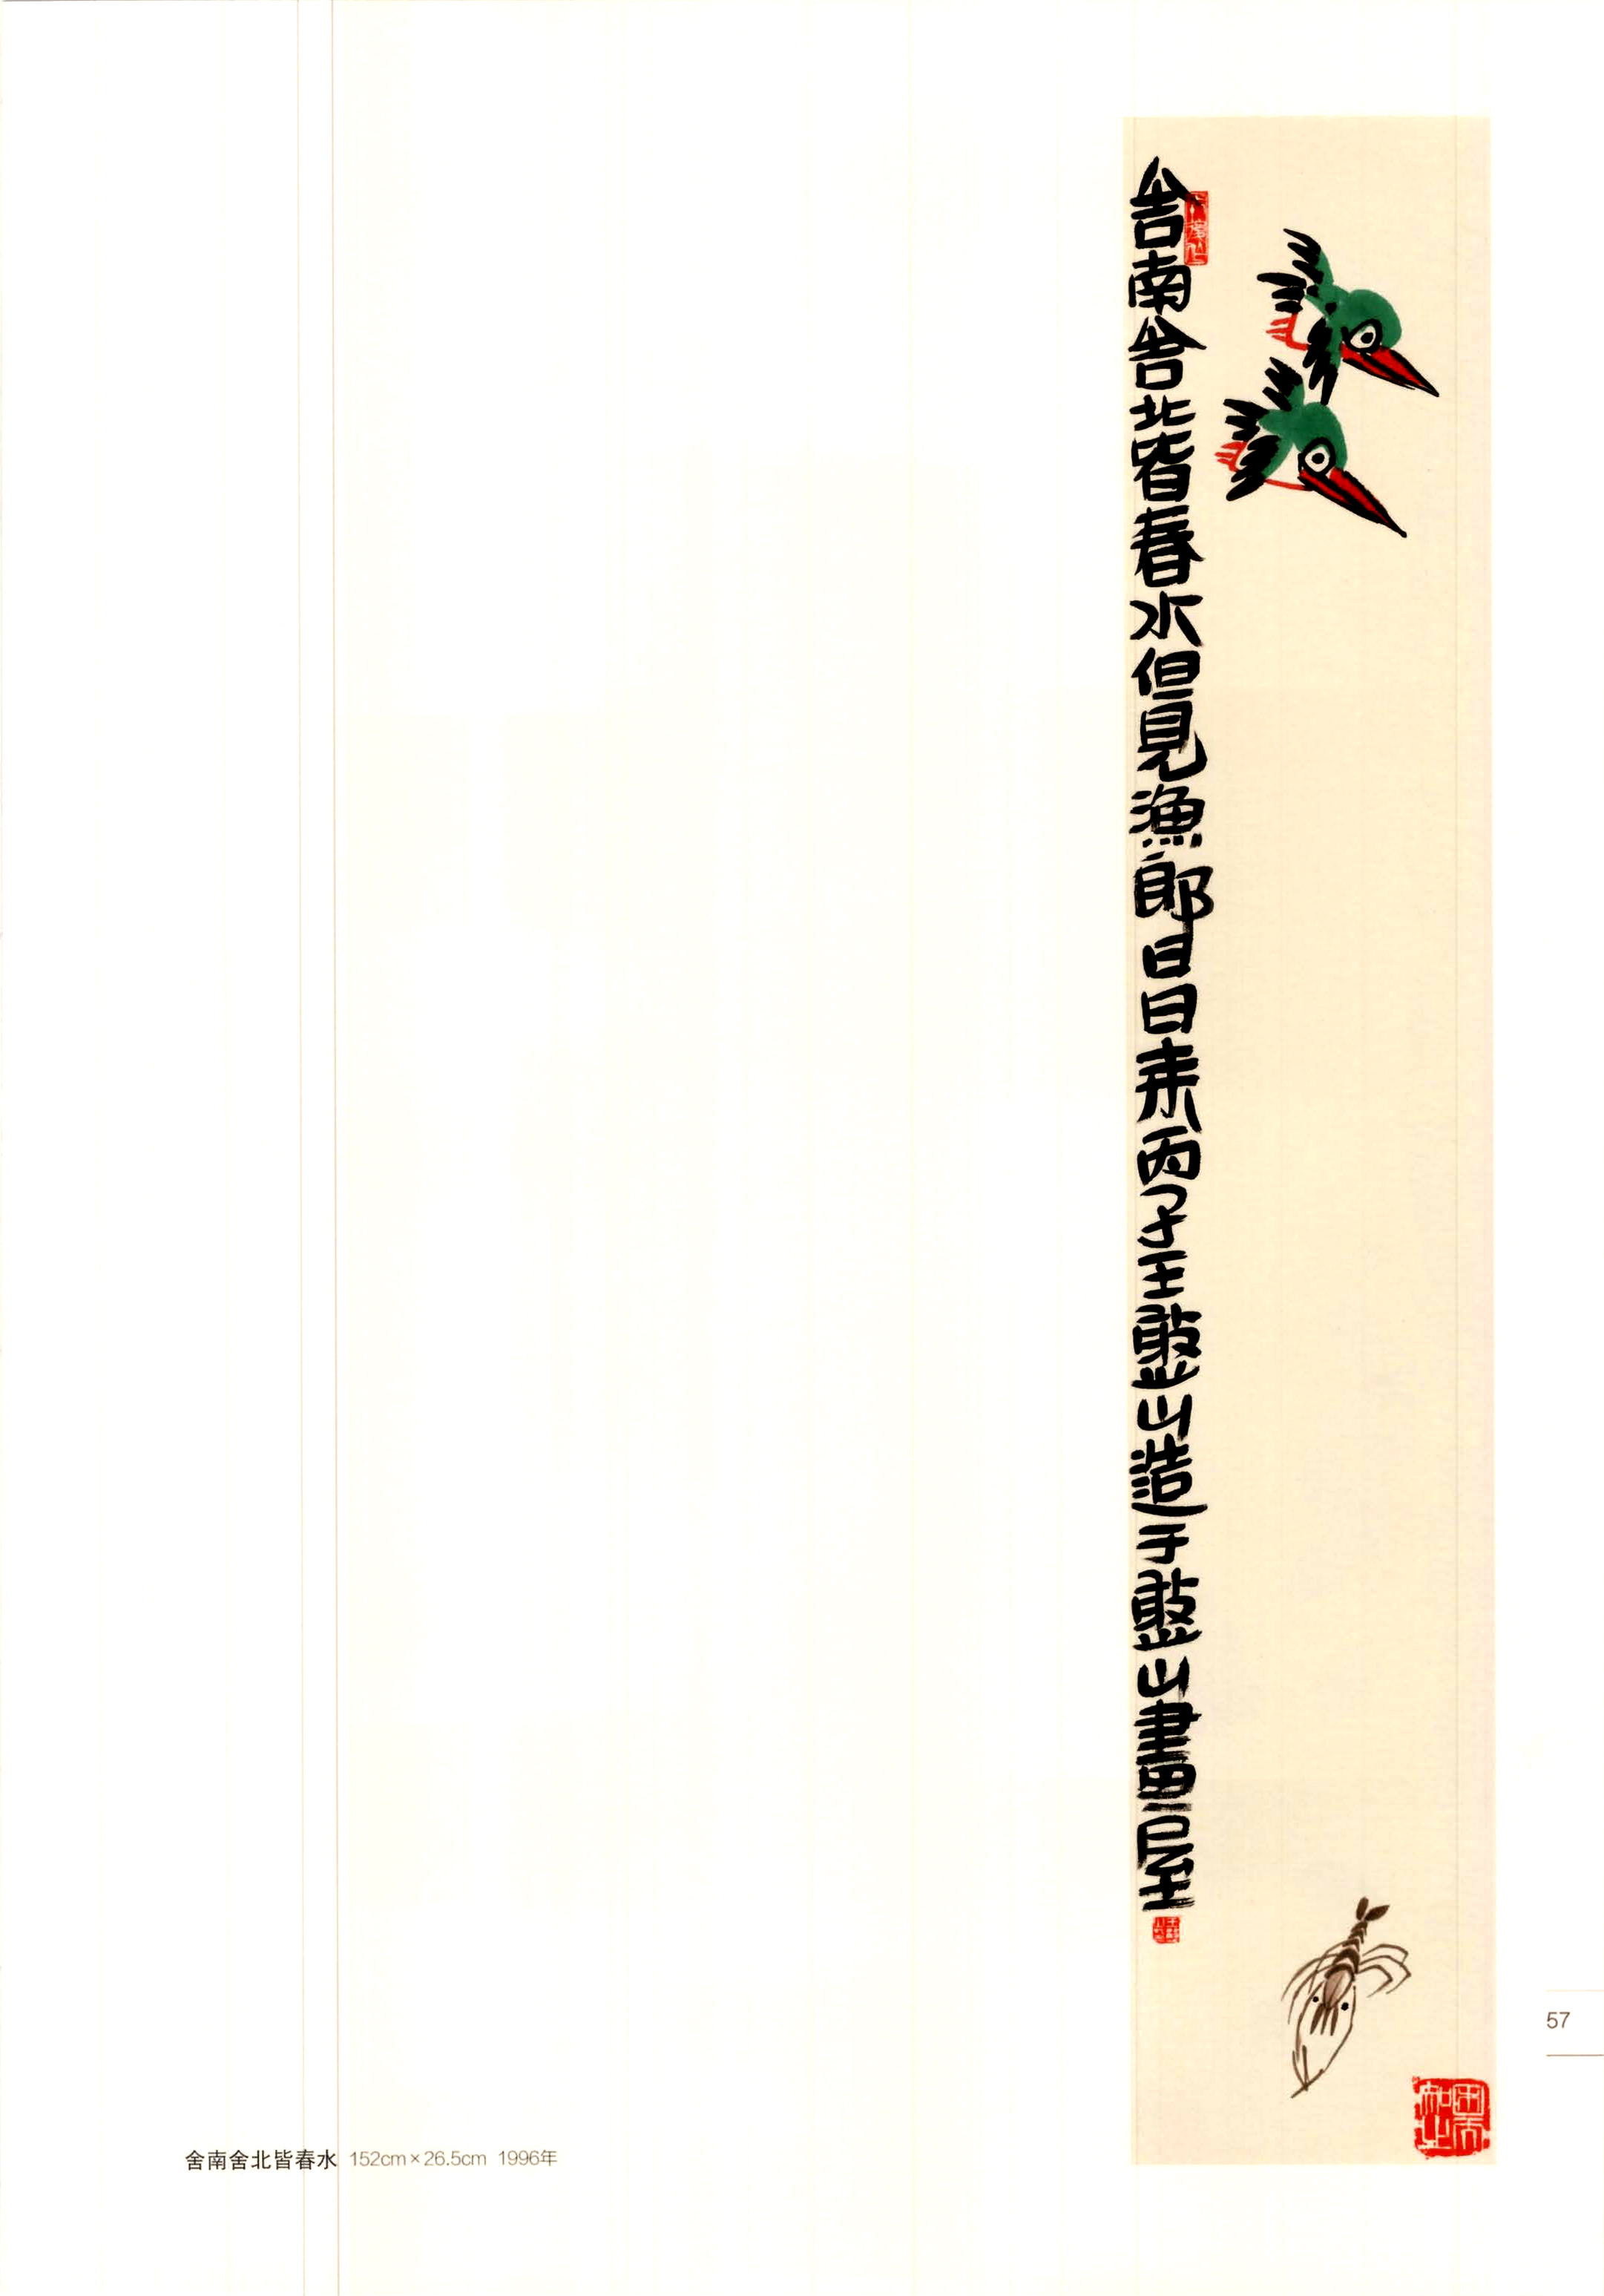 舍南舍北皆春水但見漁郎日日来丙子王憨山造于憨山畫屋
57
舍南舍北皆春水 152cm×26.5cm 1996年